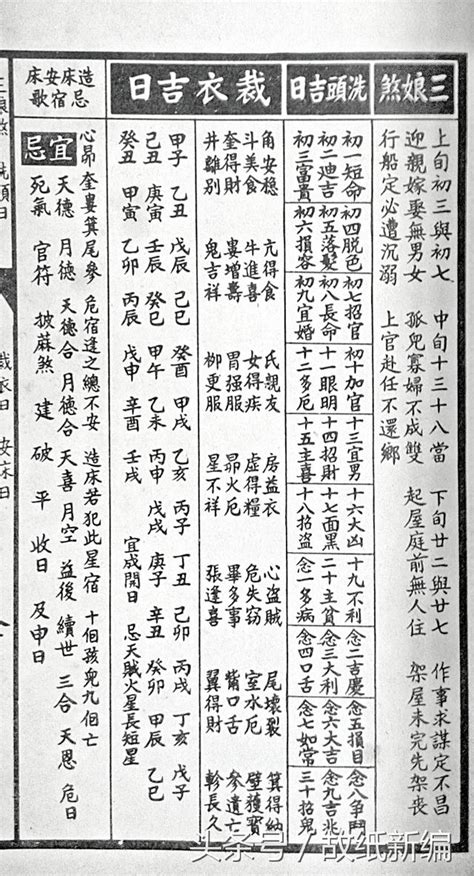 三娘煞
上旬初三與初七 中旬十三十八當 下旬廿二與廿七 作事求謀定不昌
迎親嫁娶無男女 孤兒寡婦不成雙 起屋庭前無人住 架屋未完先架喪
行船定必遭沉溺 上官赴任不還鄉
洗頭吉日
初一短命
初二迪吉
初三富貴
初四脱色
初五落髮
初六損容
初七招官
初八長命
初九宜婚
初十加官
十一眼明
十二多厄
十三宜男
十四招財
十五主喜
十六大凶
十七面黑
十八招盜
十九不利
二十主貧
念一多病
念二吉慶
念三大利
念四口舌
念五損目
念六大吉
念七如常
念八爭鬥
念九吉兆
三十招鬼
裁衣吉日
角安穩 亢得食 氐親友 房益衣 心盜賊 尾壞裂 箕得納
斗美食 牛進喜 女得疾 虛得糧 危失竊 室水厄 壁獲寶
奎得財 婁增壽 胃强服 昴火厄 畢多事 觜口舌 參遺亡
井離別 鬼吉祥 柳更服 星不祥 張逢喜 翼得財 軫長久
甲子 乙丑 戊辰 己巳 癸酉 甲戌 乙亥 丙子 丁丑 己卯 丙戌 丁亥 戊子
己丑 庚寅 壬辰 癸巳 甲午 乙未 丙申 戊戌 庚子 辛丑 癸卯 甲辰 乙巳
癸丑 甲寅 乙卯 丙辰 戊申 辛酉 壬戌 宜成開日 忌天賊火星長短星
造床安床
忌宿歌
心昴奎婁箕尾參 危宿逢之總不安 造床若犯此星宿 十個孩兒九個亡
宜 天德 月德 天德合 月德合 天喜 月空 益後 續世 三合 天恩 危日
忌 死氣 官符 披麻煞 建 破 平 收日 及申日
三娘煞 洗頭日 裁衣日 安床日
头条号/故纸新编